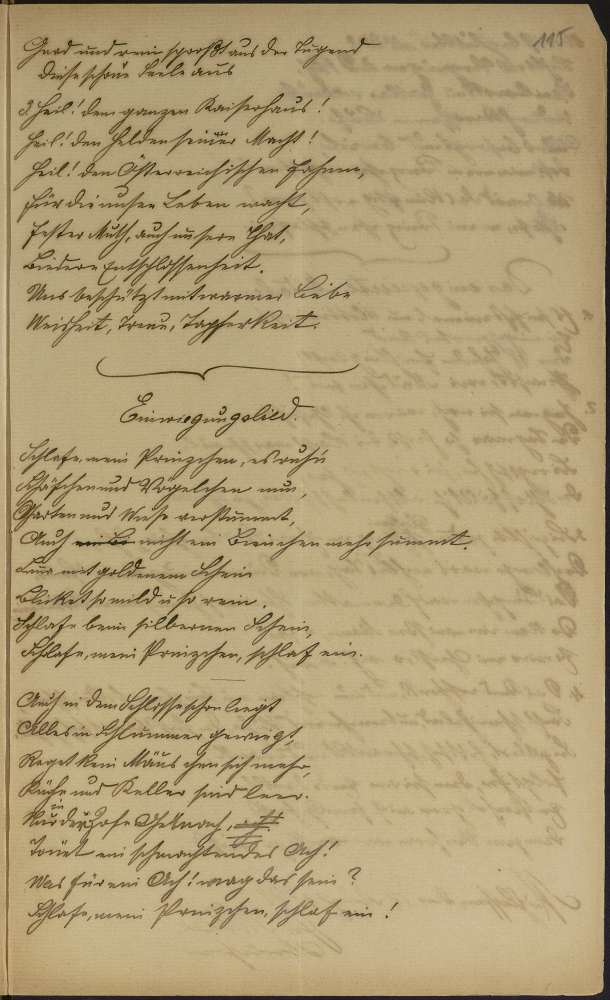 115
Hard und rein sproßt aus der Tugend
Diese schöne Seele aus
3 Heil! dem ganzen Kaiserhaus!
Heil! den Helden seiner Macht!
Heil! den Österreichischen Fahnen,
Für die unser Leben wacht,
Fester Muth, auch unsere That,
Biedere Entschlossenheit.
Uns beschützt mit warmer Liebe
Weisheit, Treue, Tapferkeit.
Einwiegungslied.
Schlafe, mein Prinzchen, es ruhn
Schäfchen und Vögelchen nun,
Garten und Wiese verstummt,
Auch nicht ein Bienchen mehr summt.
Luna mit goldenem Schein
Blicket so mild u so rein.
Schlafe beim silbernen Schein,
Schlafe, mein Prinzchen, schlaf ein.
Auch in dem Schlosse schon liegt
Alles in Schlummer gewiegt,
Reget kein Mäuschen sich mehr,
Küche und Keller sind leer.
Nur in der Zofe Gemach,
Tönet ein schmachtendes Ach!
Was für ein Ach! mag das sein?
Schlafe, mein Prinzchen, schlaf ein!